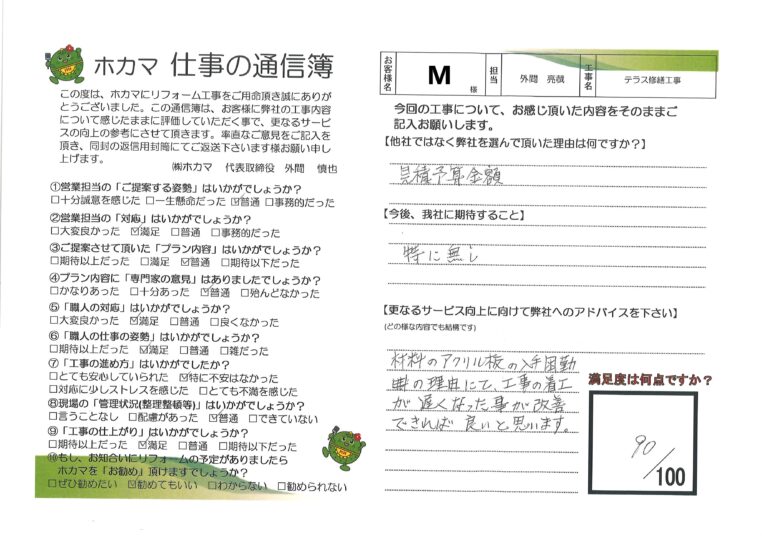 ホカマ 仕事の通信簿
この度は、ホカマにリフォーム工事をご用命頂き誠にありが
とうございました。この通信簿は、お客様に弊社の工事内容
について感じたままに評価していただく事で、更なるサービ
スの向上の参考にさせて頂きます。率直なご意見をご記入を
頂き、同封の返信用封筒にてご返送下さいます様お願い申し
上げます。
㈱ホカマ 代表取締役 外間 慎也
①営業担当の「ご提案する姿勢」はいかがでしょうか?
□十分誠意を感じた □一生懸命だった ☑普通 □事務的だった
②営業担当の「対応」はいかがでしょうか?
□大変良かった ☑満足 □普通 □期待以下だった
③ご提案させて頂いた「プラン内容」はいかがでしょうか?
□期待以上だった □満足 ☑普通 □期待以下だった
④プラン内容に「専門家の意見」はありましたでしょうか?
□かなりあった □十分あった ☑普通 □殆んどなかった
⑤「職人の対応」はいかがでしょうか?
□大変良かった ☑満足 □普通 □良くなかった
⑥「職人の仕事の姿勢」はいかがでしょうか?
□期待以上だった ☑満足 □普通 □雑だった
⑦「工事の進め方」はいかがでしたか?
□とても安心していられた ☑特に不安はなかった
□対応に少しストレスを感じた □とても不満を感じた
⑧現場の「管理状況(整理整頓等)」はいかがでしょうか?
□言うことなし □配慮があった ☑普通 □できていない
⑨「工事の仕上がり」はいかがでしょうか?
□期待以上だった ☑満足 □普通 □期待以下だった
⑩もし、お知合いにリフォームの予定がありましたら
ホカマを「お勧め」頂けますでしょうか?
□ぜひ勧めたい ☑勧めてもいい □わからない □勧められない
お客様名 M 様 担当 外間 亮 工事名 テラス修繕工事
今回の工事について、お感じ頂いた内容をそのままご
記入お願いします。
【他社ではなく弊社を選んで頂いた理由は何ですか?】
見積予算金額
【今後、我社に期待すること】
特に無し
【更なるサービス向上に向けて弊社へのアドバイスを下さい】
(どの様な内容でも結構です)
材料のアクリル板の入手困
の理由にて、工事の着工
が遅くなった事が改善
できれば良いと思います。
満足度は何点ですか?
90/100